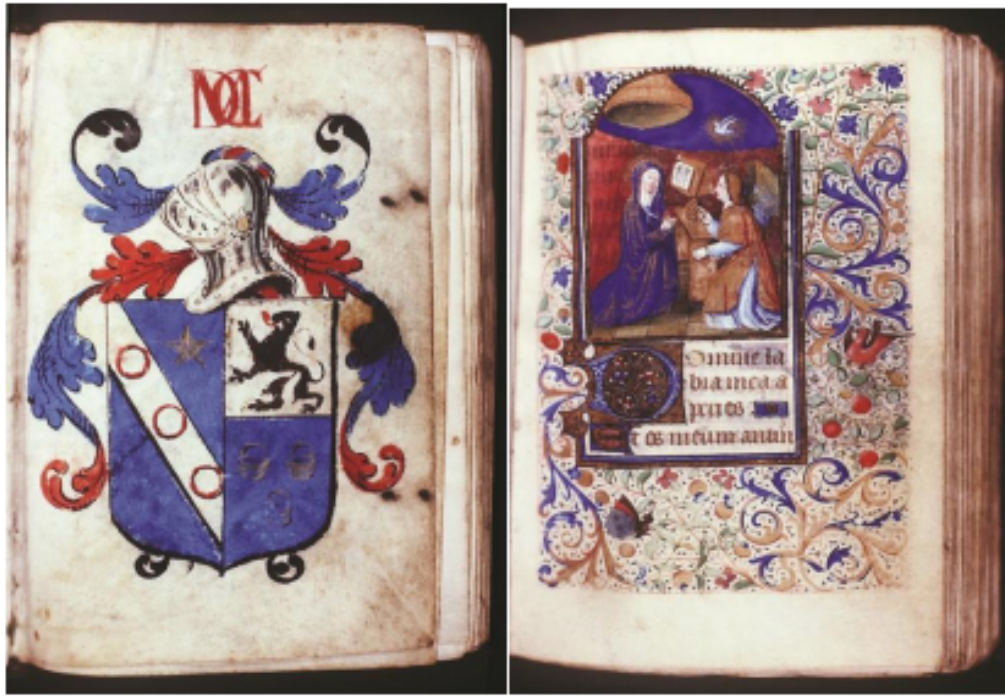 Domine la
bia mea a
peries
Et os meum annun